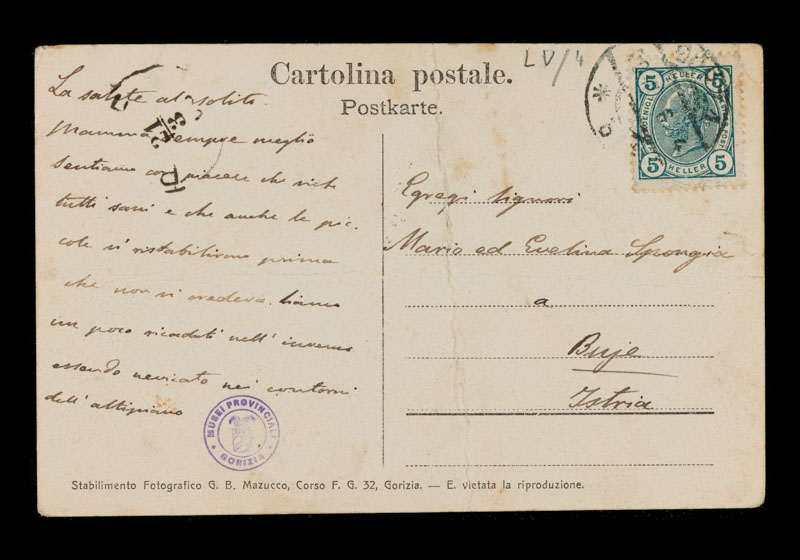 LV/4
Cartolina postale.
Postkarte.
5 HELLER 5
5 HELLER 5
La salute al solito.
Mamma sempre meglio
Sentiamo con piacere che siete
tutti sani e che anche le pic-
cole si ristabilirono prima
che non si credeva. Siamo
un poco ricaduti nell'inverno
essendo nevicato nei contorni
dell'altipiano
Egregi Signori
Maria ed Evelina Spongia
a
Buje
Istria
MUSEI PROVINCIALI
GORIZIA
Stabilimento Fotografico G. B. Mazucco, Corso F. G. 32, Gorizia. — E. vietata la riproduzione.